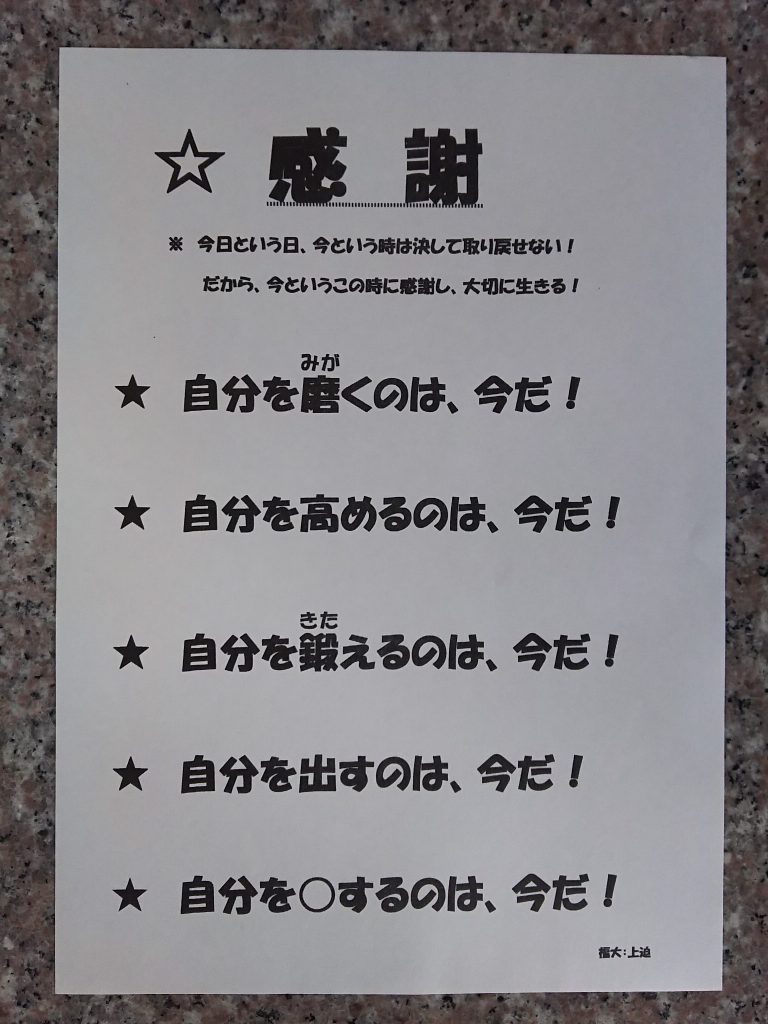 ☆ 感 謝
※ 今日という日、今という時は決して取り戻せない！
だから、今というこの時に感謝し、大切に生きる！
みが
★ 自分を磨くのは、今だ！
★ 自分を高めるのは、今だ！
きた
★ 自分を鍛えるのは、今だ！
★ 自分を出すのは、今だ！
★ 自分を○するのは、今だ！
福大：上迫